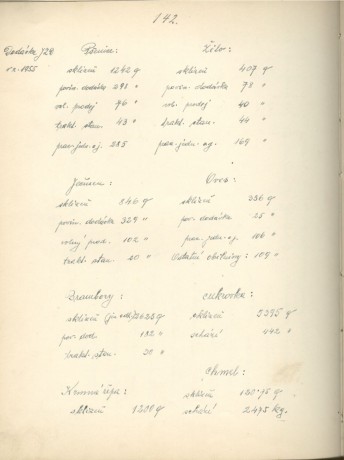 142.
Dodávka JZD
v r. 1955
Pšenice:
sklizeň 1242 q
povin. dodávka 298 "
vol. prodej 76 "
trakt. stan. 43 "
pau. jedn. aj. 285
Žito:
sklizeň 407 q
povin. dodávka 78 "
vol. prodej 40 "
trakt. stan. 44 "
pau. jedn. aj. 169 "
Ječmen:
sklizeň 846 q
povin. dodávka 329 "
volný prod. 102 "
trakt. stan. 20 "
Oves:
sklizeň 236 q
pov. dodávka 25 "
pau. jedn. aj. 106 "
Ostatní obilniny: 109 "
Brambory:
sklizeň 2623 q
pov. dod. 132 "
trakt. stan. 20 "
Cukrovka:
sklizeň 5395 q
442 "
Krmná řepa:
sklizeň 1200 q
Chmel:
sklizeň
2475 kg.